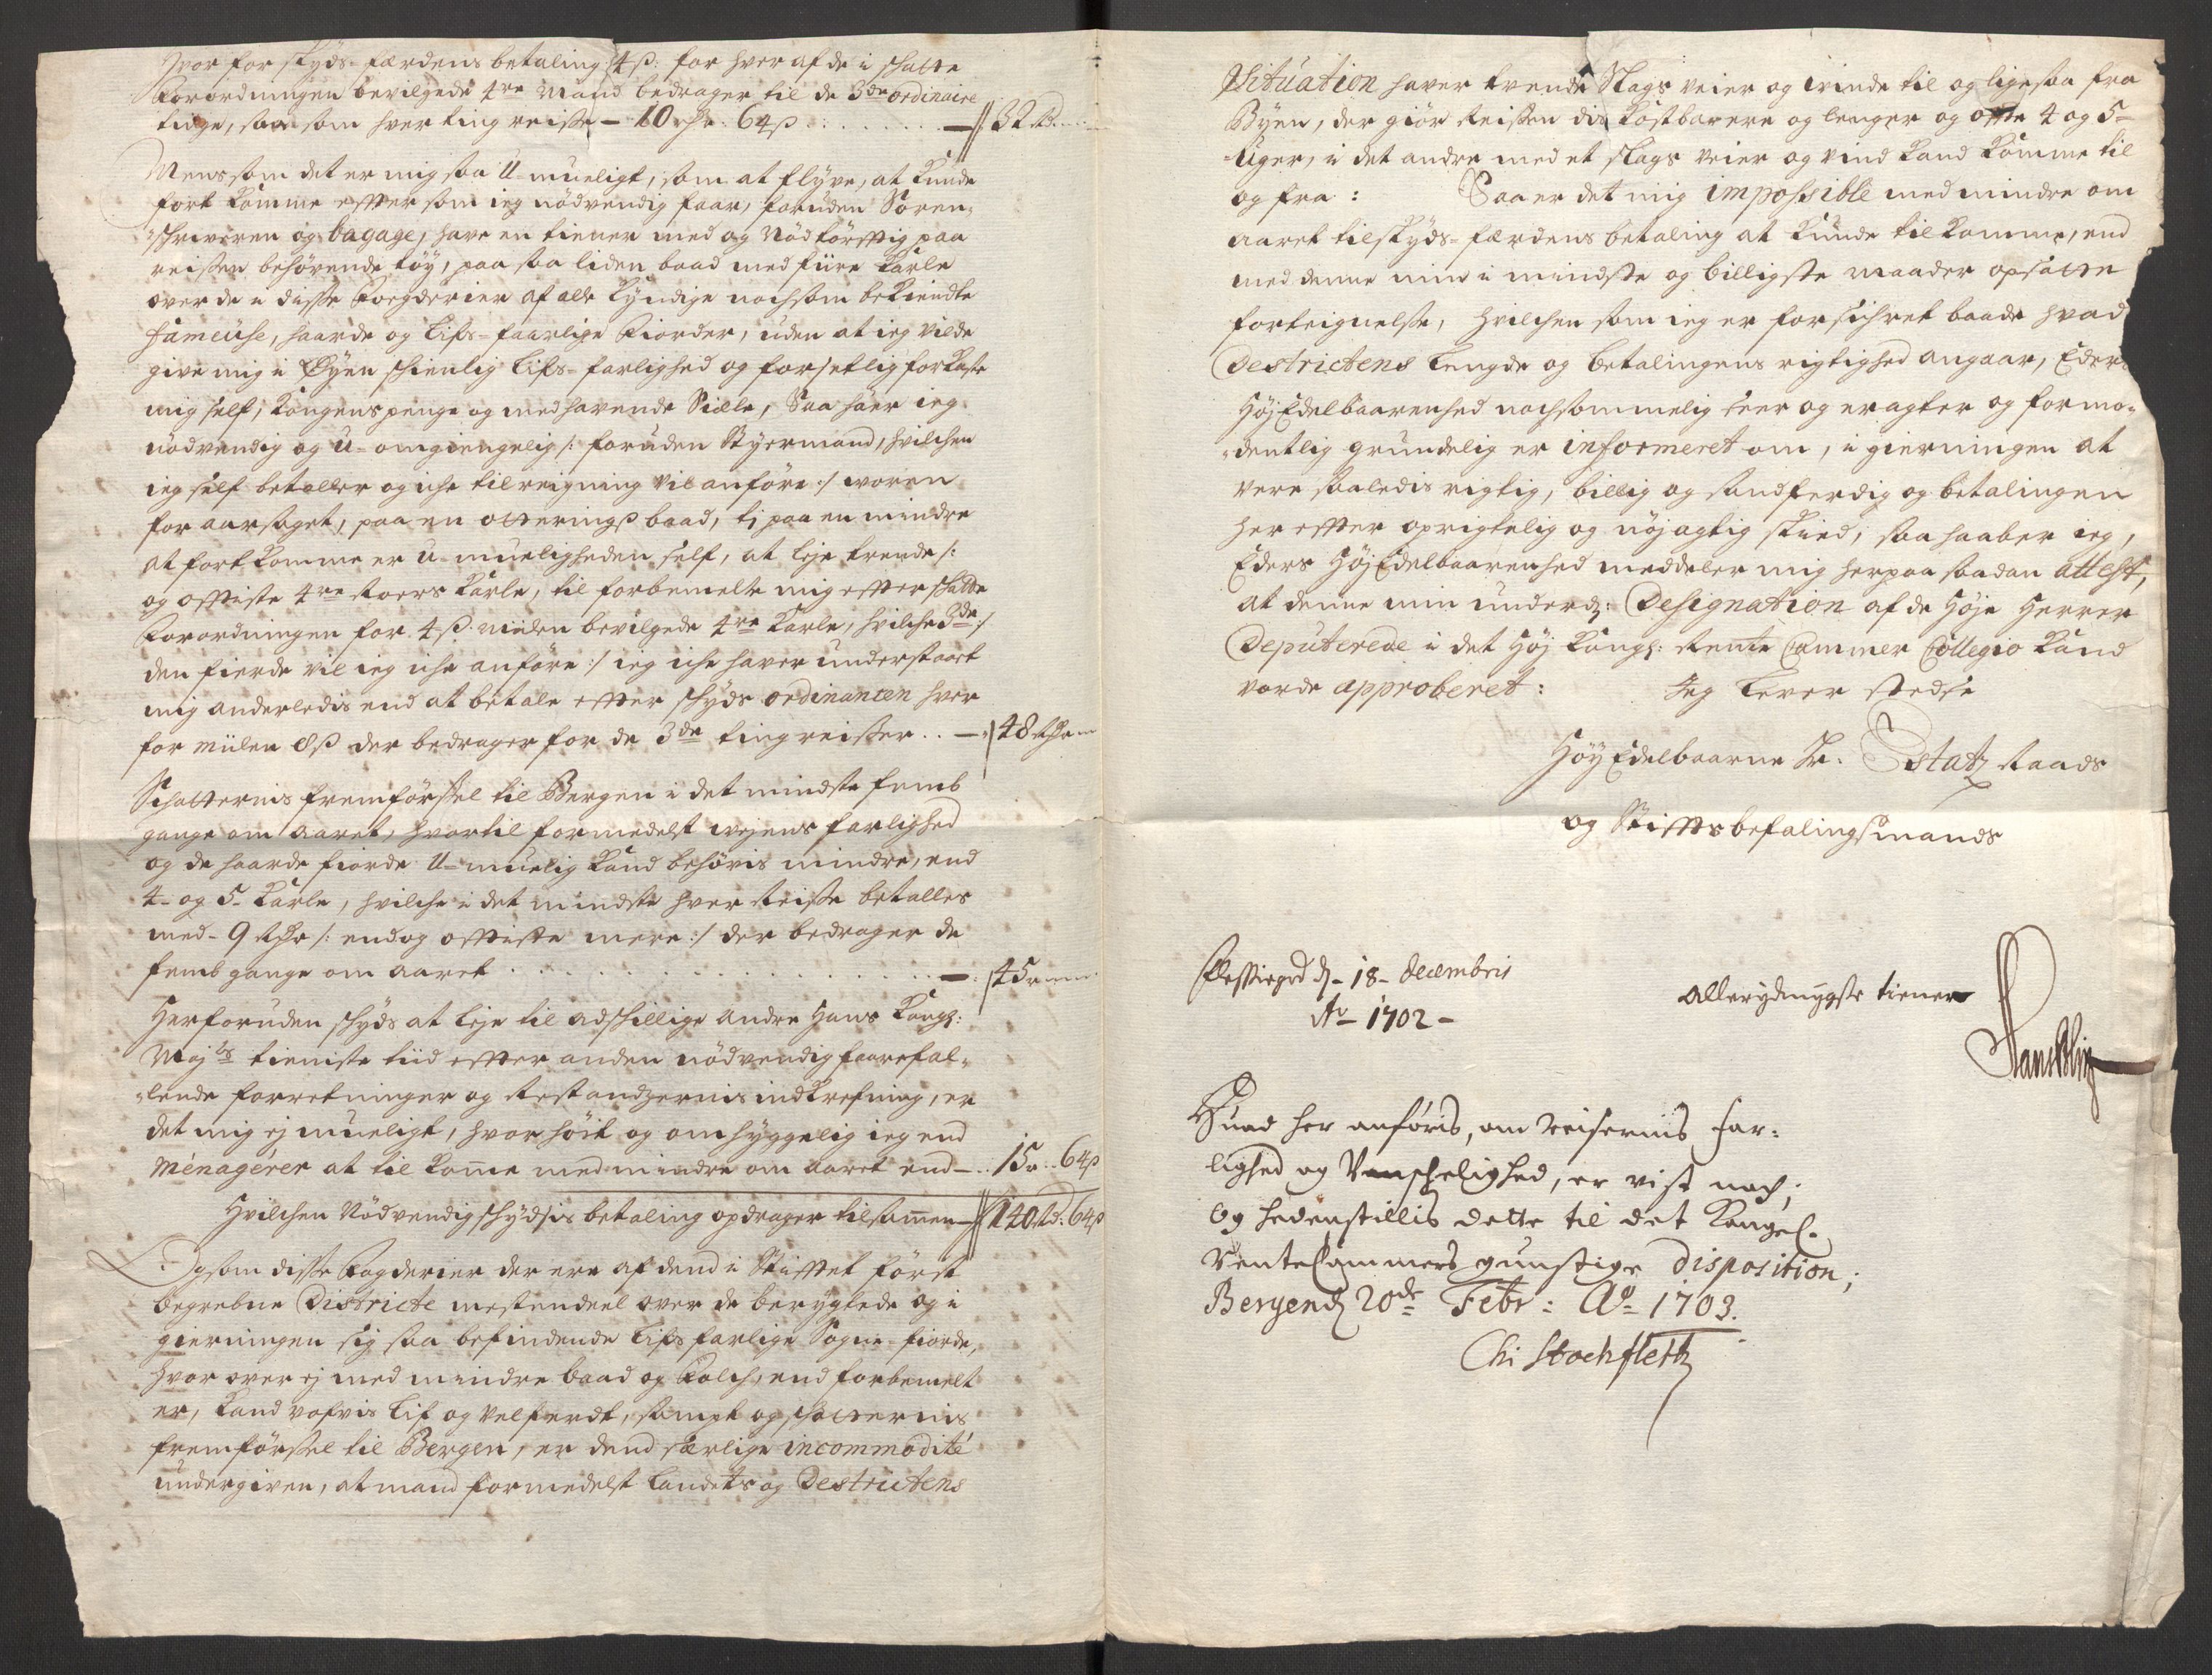 Hvor for skyds-færdens betaling 4 ß: for hver af de i schatte
Forordningen bevilgede 4re Mand bedrager til de 3de ordinaire
tinge, saa som hver ting reisse – 10 rdr: 64 ß – 32 Rd
Mens som det er mig saa U-mueligt, som at flyve, at kunde
fort komme effter som ieg nödvendig faar, foruden Soren-
schriveren og bagage, have en tiener med og Nödtörfftig paa
reissen behövende töy, paa saa liden baad med fiire Karle
over de i disse Fogderier af alle kyndige nochsom bekiendte
fameuse, haarde og Lifs-faarlige Fiorder, uden at ieg vilde
give mig i Öyen schienlig Lifs-farlighed og forsetlig forkaste
mig self, Kongens penge og medhavende Siæle, Saa haer ieg
nödvendig og U-omgiengelig /: foruden Styermand, hvilchen
ieg self betaller og iche til reigning vil anföre :/ woren
for aarsaget, paa en otterings baad, tj paa en mindre
at fortkomme er U-mueligheden self, at leje trende /:
og offtiste 4re roers Karle, til forbemelte mig effter schatte
Forordningen for 4 ß miilen bevilgede 4re Karle, hvilche 3de /
den fierde vil ieg iche anföre :/ ieg iche haver understaaet
mig anderledis end at betale effter schyds ordinanten hver
for miilen 8 ß der bedrager for de 3de ting reisser .. – 48 Rdr
Schatternis fremförssel til Bergen i det mindste femb
gange om aaret, hvortil formedelst wejens farlighed
og de haarde fiorde U-muelig kand behövis mindre, end
4- og 5- Karle, hvilche i det mindste hver Reisse betalles
med – 9 Rdr /: endog offtiste mere :/ der bedrager de
femb gange om aaret – 45
Herforuden schyds at leje til adschillige andre Hans Kongl:
Majts tieniste tiid effter anden nödvendig faarefal-
lende forretninger og Restandzernis indkrefning, er
det mig ej mueligt, hvor höit og omhyggelig ieg end
Ménagérer at til kome med mindre om aaret end – 15 .. 64 ß
Hvilchen Nödvendig schydsis betaling opdrager tilsamen – 140 Rd: 64 ß
Og som disse Fogderier der ere af dend i Stifftet först
begrebne Districte mestendeel over de berygtede og i
gierningen sig saa befindende Lifs farlige Sogne-fiorde,
hvor over ej med mindre baad og Folch, end forbemelt
er, kand vofvis Lif og velferdt, sampt og schatternis
fremförssel til Bergen, er dend særlige incommodité
undergiven, at mand formedelst Landets og Destrictens
Situation haver tvende Slags veier og vinde til og ligesaa fra
Byen, der giör Reissen dis kostbarere og lenger og offte 4 og 5-
Uger, i det andre med et slags veier og vind kand komme til
og fra: Saa er det mig impossible med mindre om
aaret til skyds-færdens betaling at kunde tilkomme, end
med denne min i mindste og billigste maader opsatte
forteignelse, hvilchen som ieg er forsichret baade hvad
Destrictens Lengde og betalingens rigtighed angaar, Eders
HöjEdelbaarenhed nochsommelig seer og eragter og formo-
dentlig grundelig er informeret om, i gierningen at
vere saaledis rigtig, billig og sandferdig og betalingen
her effter oprigtelig og nöjagtig skeed, saa haaber ieg,
Eders HöjEdelbaarenhed meddeler mig herpaa saadan attest,
at denne min underd: Designation af de Höje Herrer
Deputerede i det Höj Kongl: Rente Cammer Collegio kand
vorde approberet: Jeg Lever stedse
HöyEdelbaarne Hr. Estatz Raads
og Stifftsbefalingsmands
d – 18 – decembris
Ao – 1702 –
allerydmygste tiener
Huad her anföris, om Reisernis far-
lighed og Vanschelighed, er vist noch;
Og hedenstillis dette til det Kongel.
RenteCammers gunstige disposition;
Bergen d 20de Febr: Ao 1703.
Chi Stochfleth